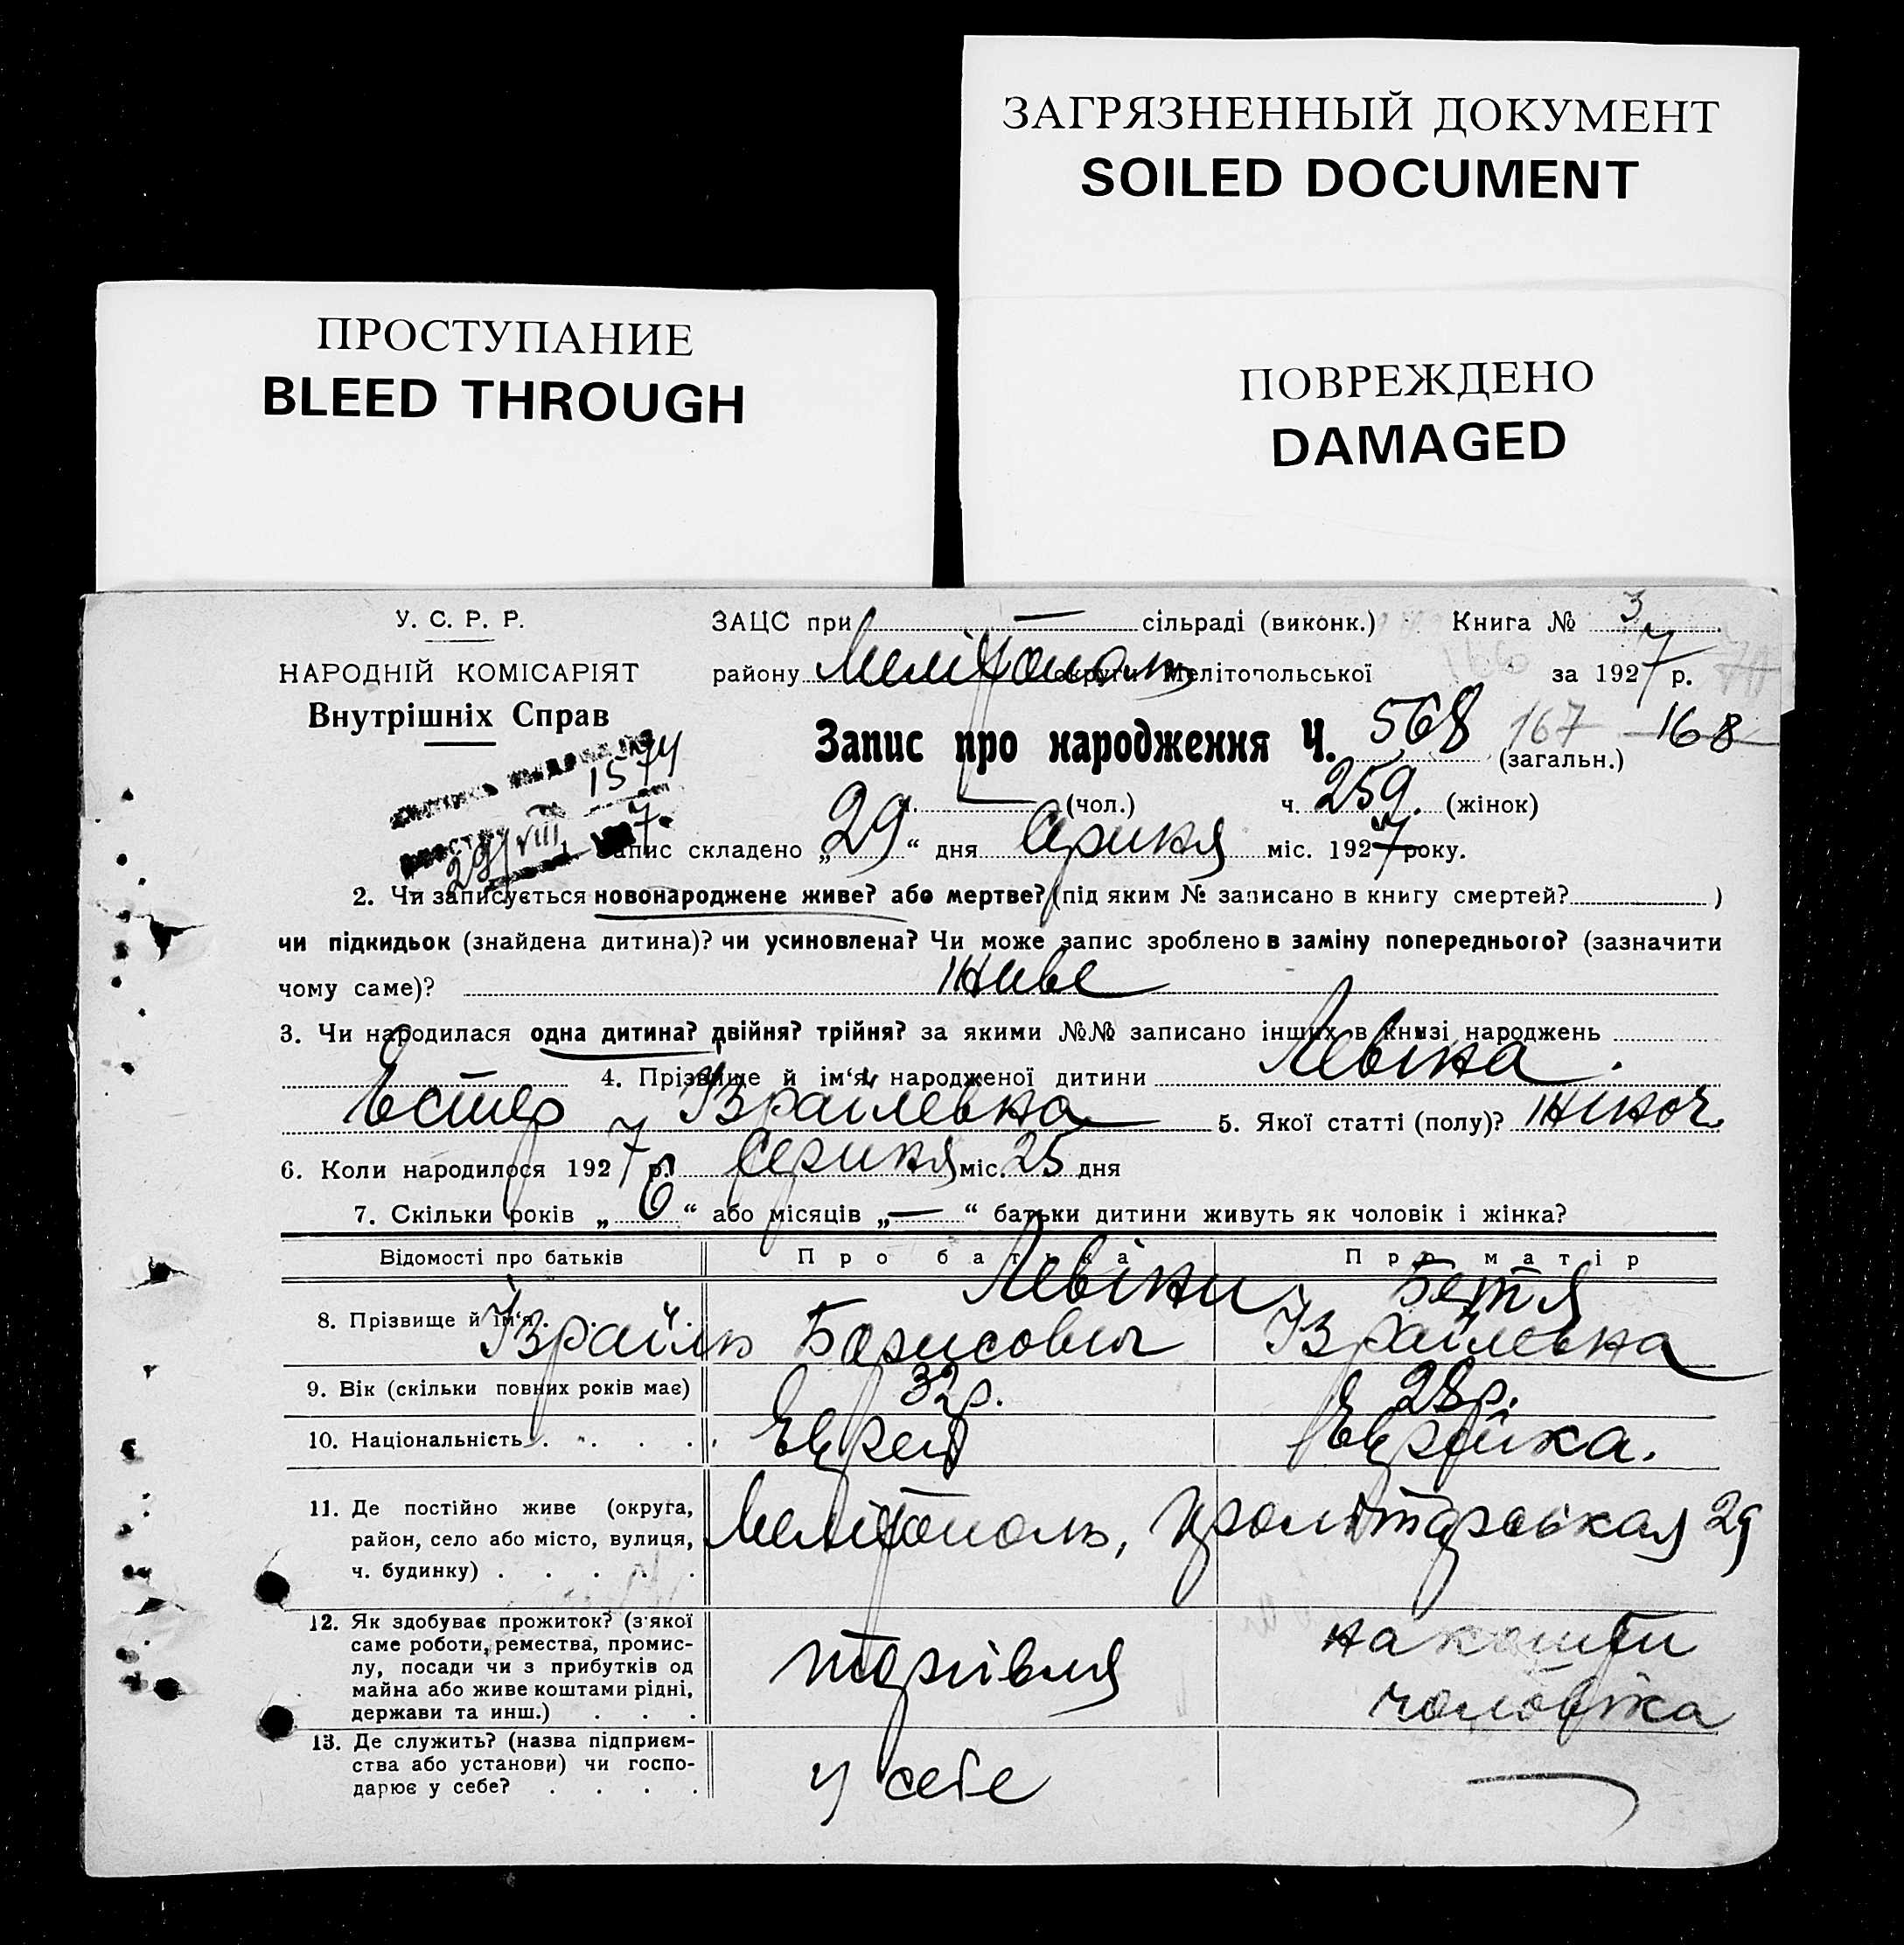 ЗАГРЯЗНЕННЫЙ ДОКУМЕНТ
SOILED DOCUMENT
ПРОСТУПАНИЕ
BLEED THROUGH
ПОВРЕЖДЕНО
DAMAGED
У. С. Р. Р.
НАРОДНІЙ КОМІСАРІЯТ
Внутрішніх Справ
ЗАЦС при — сільраді (виконк.) Книга № 3
району Мелітополь округи Мелітопольської за 1927 р.
Запис про народження Ч. 568 (загальн.) 167 168
ч. — (чол.) ч. 259. (жінок)
1574
29/VIII 7
1. Запис складено „29“ дня Серпня міс. 1927 року.
2. Чи записується новонароджене живе? або мертве? (під яким № записано в книгу смертей? )
чи підкидьок (знайдена дитина)? чи усиновлена? Чи може запис зроблено в заміну попереднього? (зазначити
чому саме)? Живе
3. Чи народилася одна дитина? двійня? трійня? за якими №№ записано інших в книзі народжень
4. Прізвище й ім‘я народженої дитини Левіна
Естер Ізраілевна 5. Якої статті (полу)? Жіноч.
6. Коли народилося 1927 р. Серпня міс. 25 дня
7. Скільки років „6“ або місяців „—“ батьки дитини живуть як чоловік і жінка?
Відомості про батьків Про батька Про матір
Левіни
8. Прізвище й ім‘я Ізраїль Борисович Бетя Ізраілевна
9. Вік (скільки повних років має) 32р. 28р.
10. Національність Еврей Еврейка.
11. Де постійно живе (округа,
район, село або місто, вулиця,
ч. будинку)
Мелітополь, Пролетарськая 29
12. Як здобуває прожиток? (з якої
саме роботи, ремества, промис-
лу, посади чи з прибутків од
майна або живе коштами рідні,
держави та инш.)
торгівля
на кошти
чоловіка
13. Де служить? (назва підприєм-
ства або установи) чи госпо-
дарює у себе?
у себе